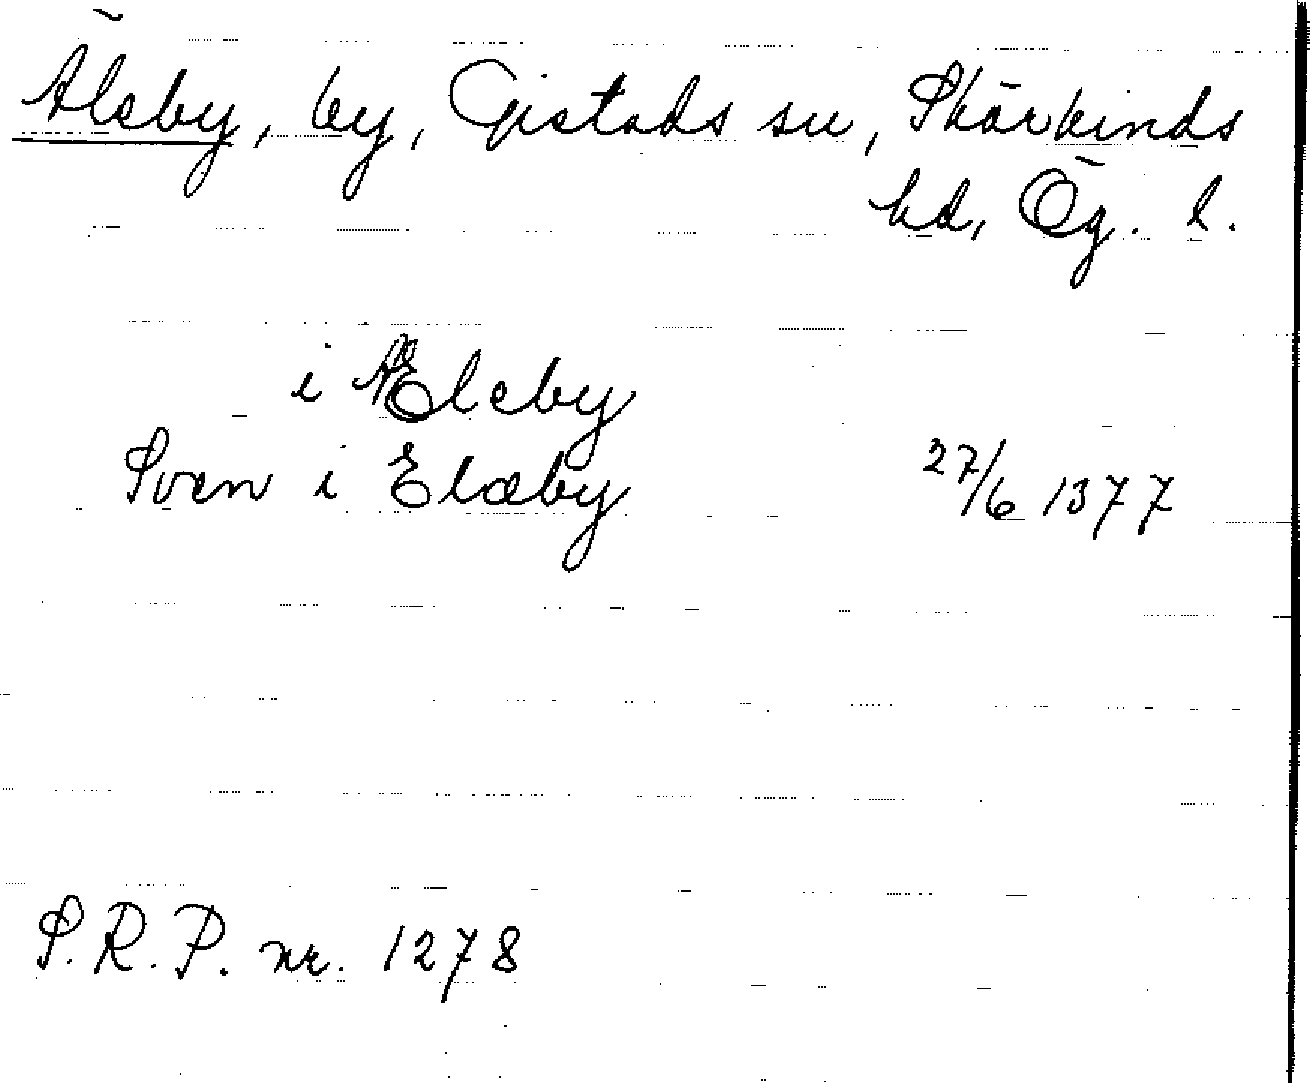 Älsby, by, Gistads sn, Skärkinds
hd, Ög. l.
i Ælsby
Sven i Elæby 27/6 1377
S.R.P. nr. 1278